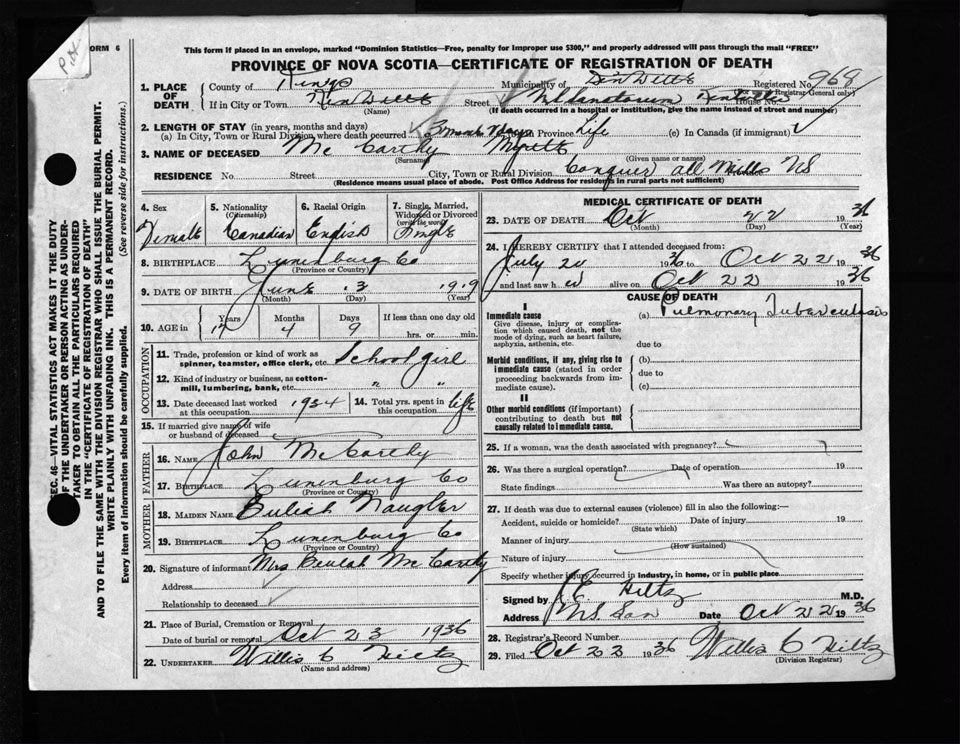 Pkt
FORM 6
This form if placed in an envelope, marked "Dominion Statistics—Free, penalty for improper use $300," and properly addressed will pass through the mail "FREE"
PROVINCE OF NOVA SCOTIA—CERTIFICATE OF REGISTRATION OF DEATH
1. PLACE OF DEATH County of Kings Municipality of Registered No. 969
(Registrar General only)
If in City or Town Street House No.
(Name) (If death occurred in a hospital or institution, give the name instead of street and number)
2. LENGTH OF STAY (in years, months and days)
(a) In City, Town or Rural Division where death occurred 3 months days Province Life (c) In Canada (if immigrant)
3. NAME OF DECEASED McCarthy Myrtle
(Surname) (Given name or names)
RESIDENCE No. Street City, Town or Rural Division Conquer all Mills NS
(Residence means usual place of abode. Post Office Address for residents in rural parts not sufficient)
4. Sex Female
5. Nationality (Citizenship) Canadian
6. Racial Origin English
7. Single, Married, Widowed or Divorced (write the word) Single
8. BIRTHPLACE Lunenburg Co
(Province or Country)
9. DATE OF BIRTH June 13 1919
(Month) (Day) (Year)
10. AGE in Years 17 Months 4 Days 9 If less than one day old hrs. or min.
OCCUPATION
11. Trade, profession or kind of work as spinner, teamster, office clerk, etc. School girl
12. Kind of industry or business, as cotton-mill, lumbering, bank, etc. " "
13. Date deceased last worked at this occupation 1934
14. Total yrs. spent in this occupation life
15. If married give name of wife or husband of deceased
FATHER
16. NAME John McCarthy
17. BIRTHPLACE Lunenburg Co
(Province or Country)
MOTHER
18. MAIDEN NAME Buliah Naugler
19. BIRTHPLACE Lunenburg Co
(Province or Country)
20. Signature of informant Mrs Beulah McCarthy
Address
Relationship to deceased
21. Place of Burial, Cremation or Removal
Date of burial or removal Oct 23 1936
22. UNDERTAKER Willis C Hiltz
(Name and address)
MEDICAL CERTIFICATE OF DEATH
23. DATE OF DEATH Oct 22 1936
(Month) (Day) (Year)
24. I HEREBY CERTIFY that I attended deceased from:
July 20 1936 to Oct 22 1936
and last saw h alive on Oct 22 1936
CAUSE OF DEATH
I
Immediate cause (a) Pulmonary Tuberculosis
Give disease, injury or complication which caused death, not the mode of dying, such as heart failure, asphyxia, asthenia, etc.
due to
Morbid conditions, if any, giving rise to immediate cause (stated in order proceeding backwards from immediate cause).
(b)
due to
(c)
II
Other morbid conditions (if important) contributing to death but not causally related to immediate cause.
25. If a woman, was the death associated with pregnancy?
26. Was there a surgical operation? Date of operation 19
State findings Was there an autopsy?
27. If death was due to external causes (violence) fill in also the following:—
Accident, suicide or homicide? Date of injury 19
(State which)
Manner of injury
(How sustained)
Nature of injury
Specify whether injury occurred in industry, in home, or in public place
Signed by J E Hiltz M.D.
Address NS San Date Oct 22 1936
28. Registrar's Record Number
29. Filed Oct 22 1936 Willis C Hiltz
(Division Registrar)
SEC. 46—VITAL STATISTICS ACT MAKES IT THE DUTY
OF THE UNDERTAKER OR PERSON ACTING AS UNDER-
TAKER TO OBTAIN ALL THE PARTICULARS REQUIRED
IN THE "CERTIFICATE OF REGISTRATION OF DEATH"
AND TO FILE THE SAME WITH THE DIVISION REGISTRAR WHO SHALL ISSUE THE BURIAL PERMIT.
WRITE PLAINLY WITH UNFADING INK. THIS IS A PERMANENT RECORD.
Every item of information should be carefully supplied. (See reverse side for instructions.)